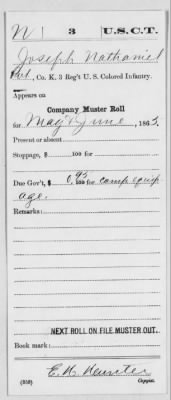 N | 3 | U.S.C.T.
Joseph Nathaniel
Pvt., Co. K, 3 Reg't U. S. Colored Infantry.
Appears on
Company Muster Roll
for May & June, 1865.
Present or absent
Stoppage, $ 100 for
Due Gov't, $ 0.95 100 for camp equip
age.
Remarks:
NEXT ROLL ON FILE MUSTER OUT.
Book mark:
(358) Copyist.